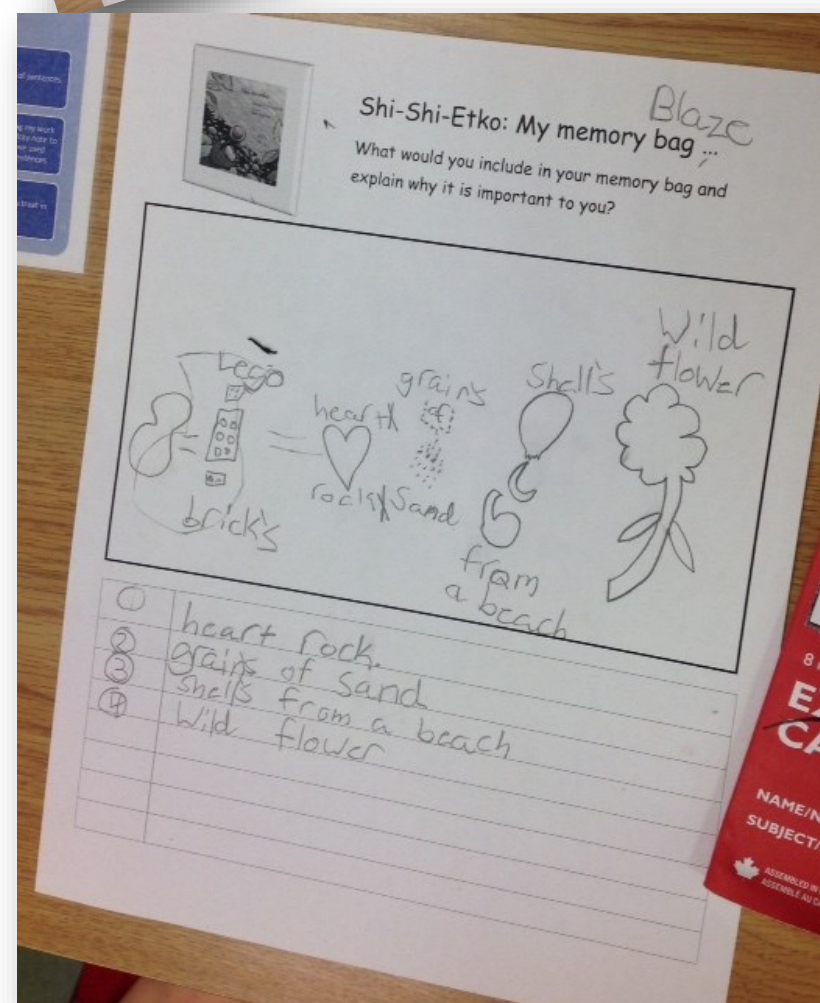 of sentences.
Blaze
Shi-Shi-Etko: My memory bag ...
What would you include in your memory bag and
explain why it is important to you?
Lego
brick's
heart
rock
grain's
of
Sand
Shell's
from
a beach
Wild
flower
① heart rock.
② grain's of Sand
③ Shell's from a beach
④ Wild flower
8
NAME/N
SUBJECT/
ASSEMBLED IN
ASSEMBLÉ AU CA